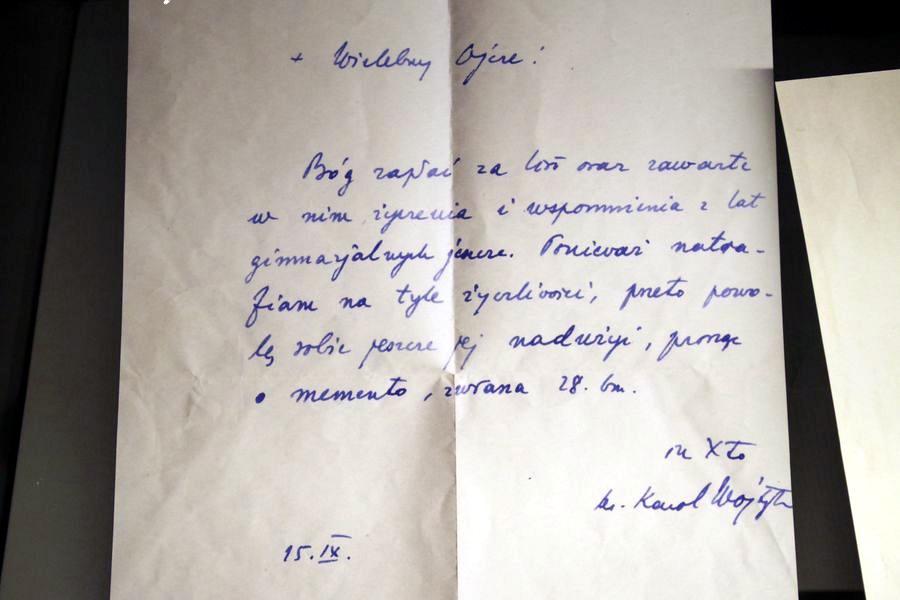 + Wielebny Ojcze!
Bóg zapłać za list oraz zawarte
w nim życzenia i wspomnienia z lat
gimnazjalnych jeszcze. Ponieważ natra-
fiam na tyle życzliwości, przeto pozwo-
lę sobie jeszcze jej nadużyć, prosząc
o memento, zwłaszcza 28. bm.
in Xto
ks. Karol Wojtyła
15.IX.